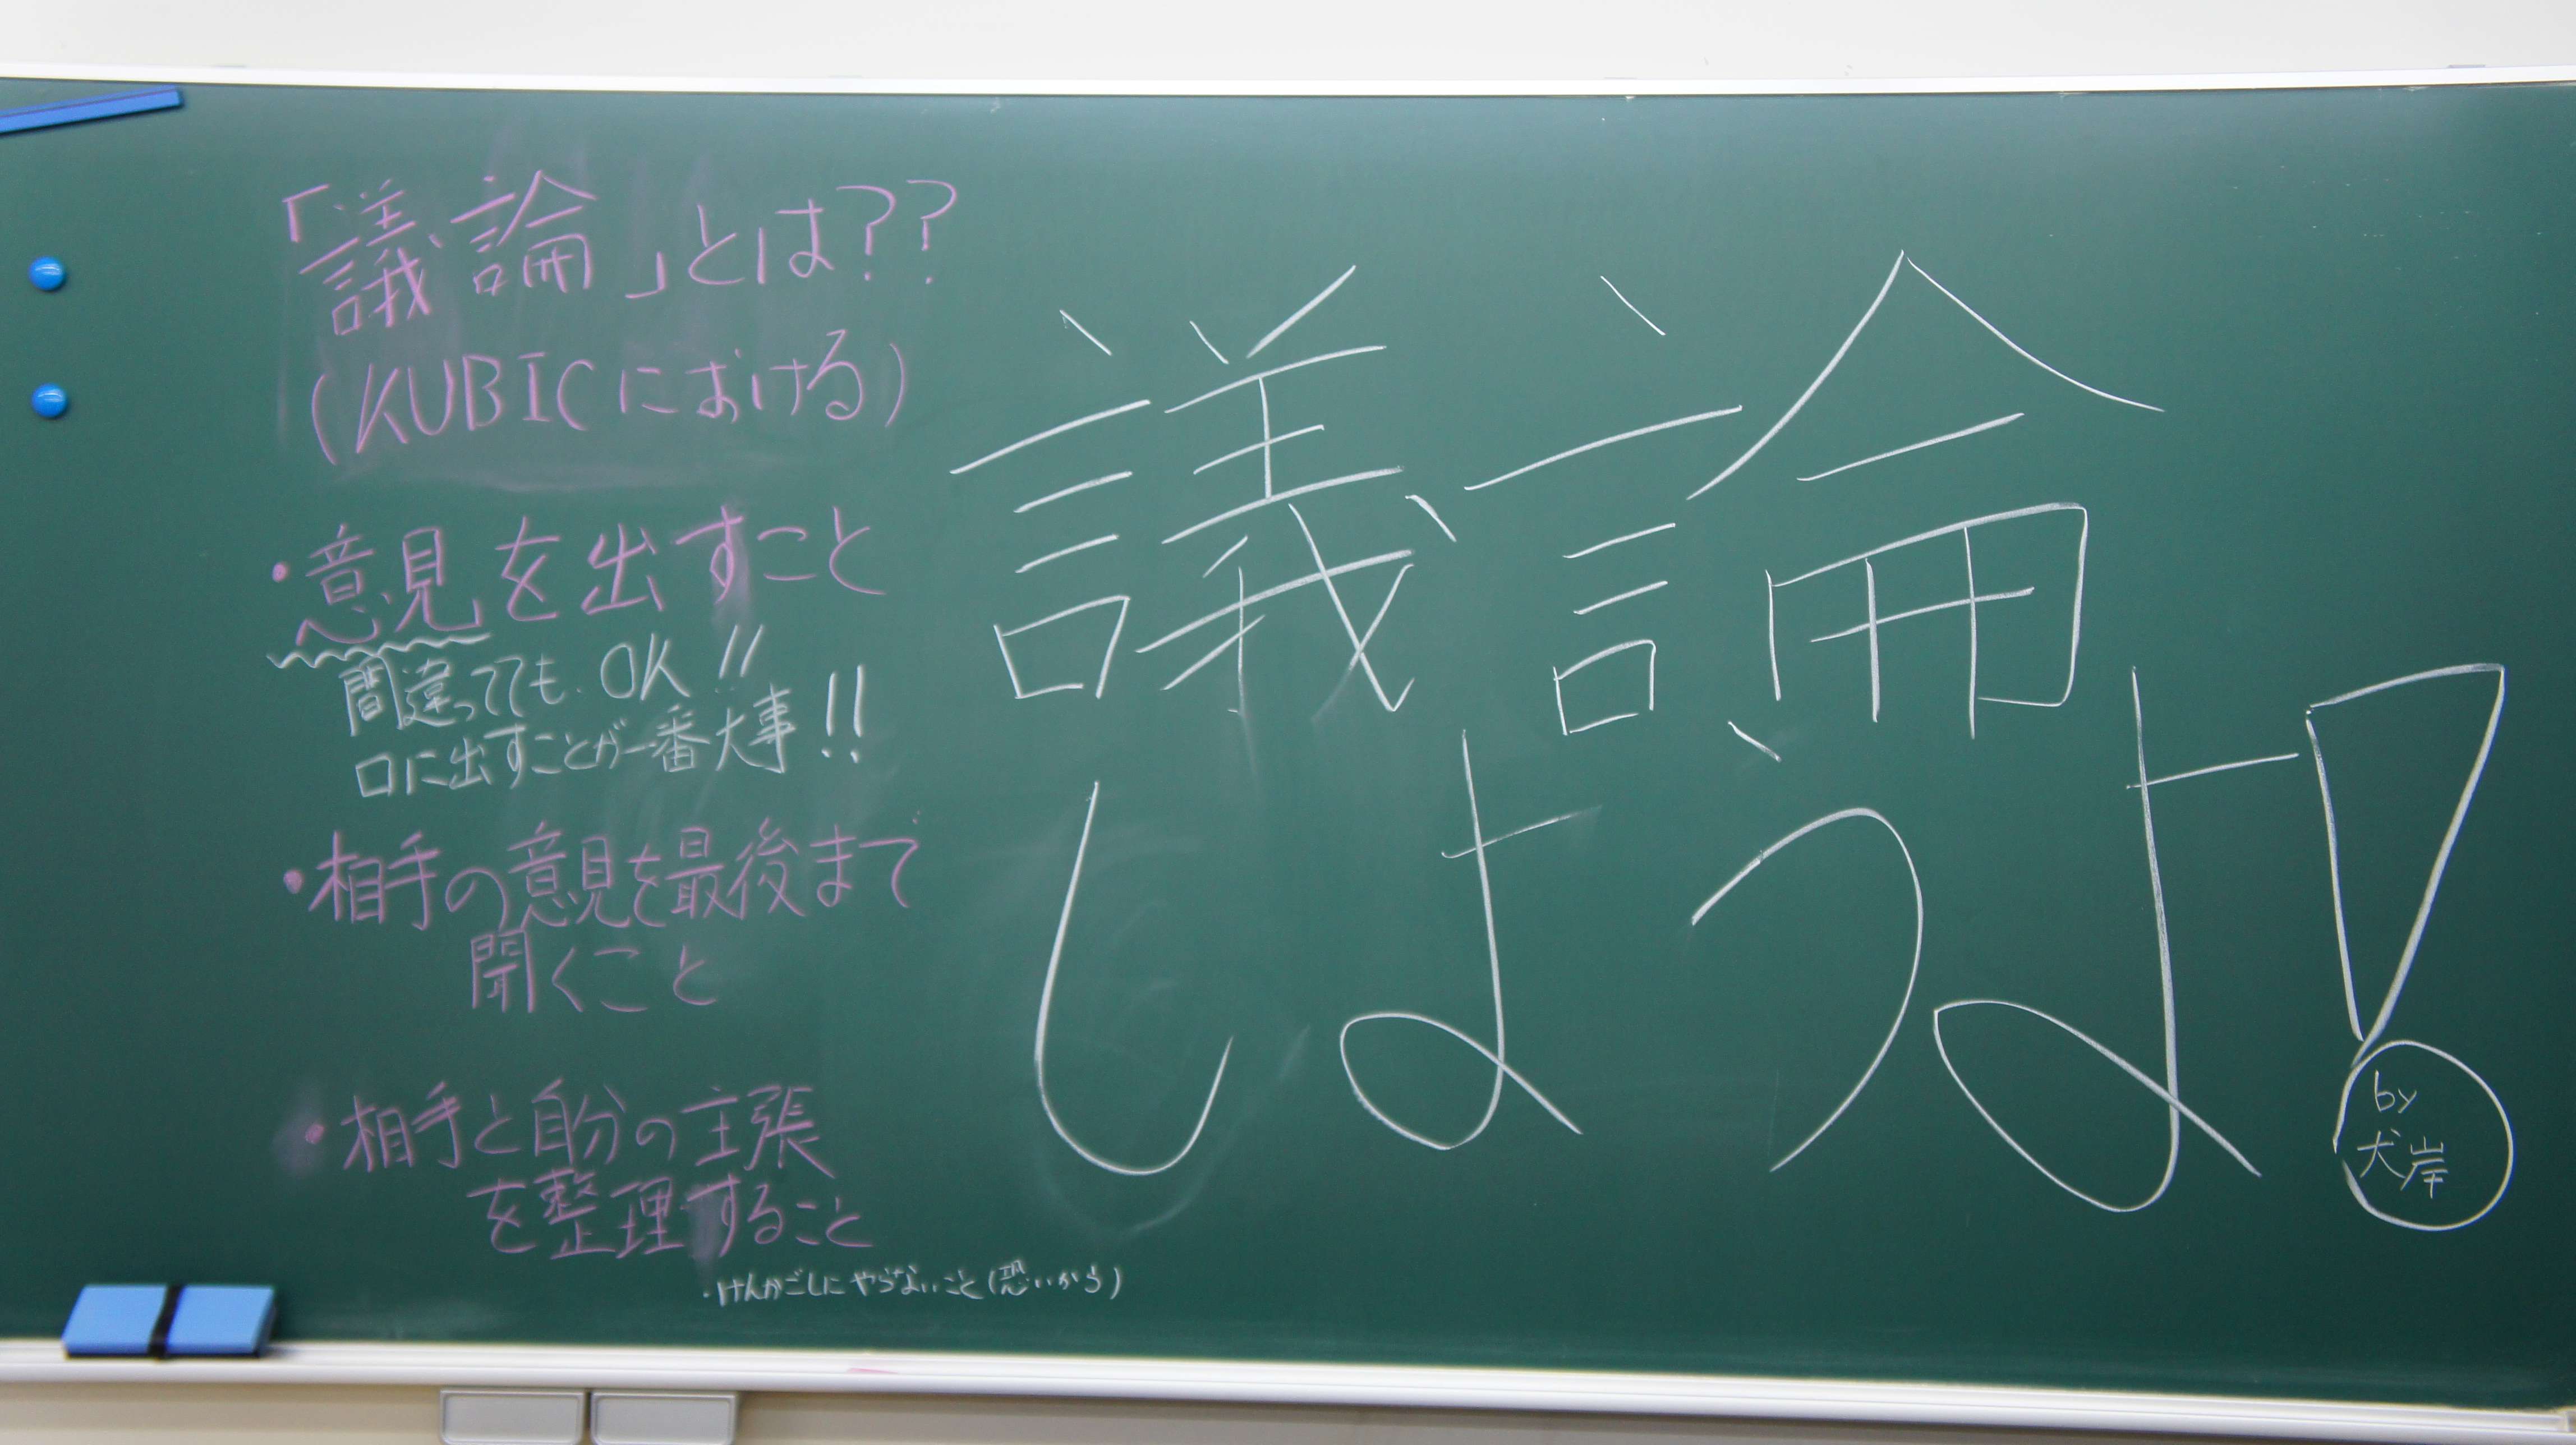 「議論」とは??
(KUBICにおける)
・意見を出すこと
間違ってても OK!!
口に出すことが一番大事!!
・相手の意見を最後まで
聞くこと
・相手と自分の主張
を整理すること
・けんかごしにやらないこと(恐いから)
議論
しようよ!
by
犬岸